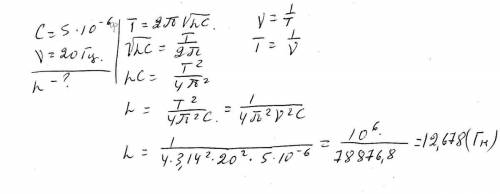 C = 5·10⁻⁶ Ф
ν = 20 Гц.
h - ?
T = 2π√hC.
√hC = T/2π
hC = T²/4π²
h = T²/4π²C. = 1/4π²ν²C
h = 1/4·3,14²·20²·5·10⁻⁶ = 10⁶./78876,8 = 12,678 (Гн)
ν = 1/T
T = 1/ν